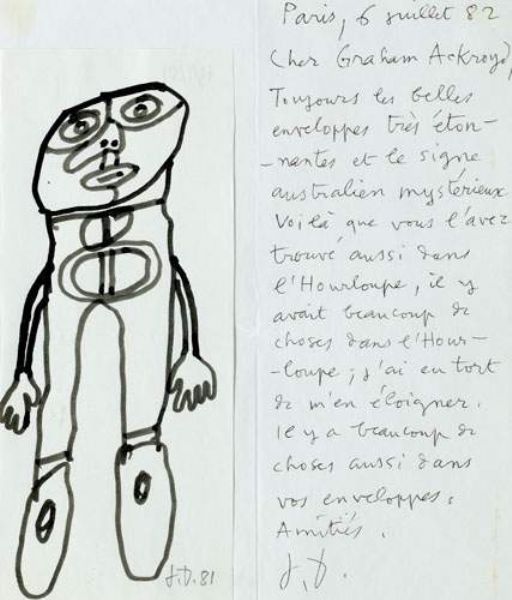 Paris, 6 juillet 82
Cher Graham Ackroyd,
Toujours les belles
enveloppes très éton-
-nantes et le signe
australien mystérieux
Voilà que vous l'avez
trouvé aussi dans
l'Hourloupe, il y
avait beaucoup de
choses dans l'Hour-
-loupe ; j'ai eu tort
de m'en éloigner.
Il y a beaucoup de
choses aussi dans
vos enveloppes.
Amitiés.
J. D.
J.D. 81